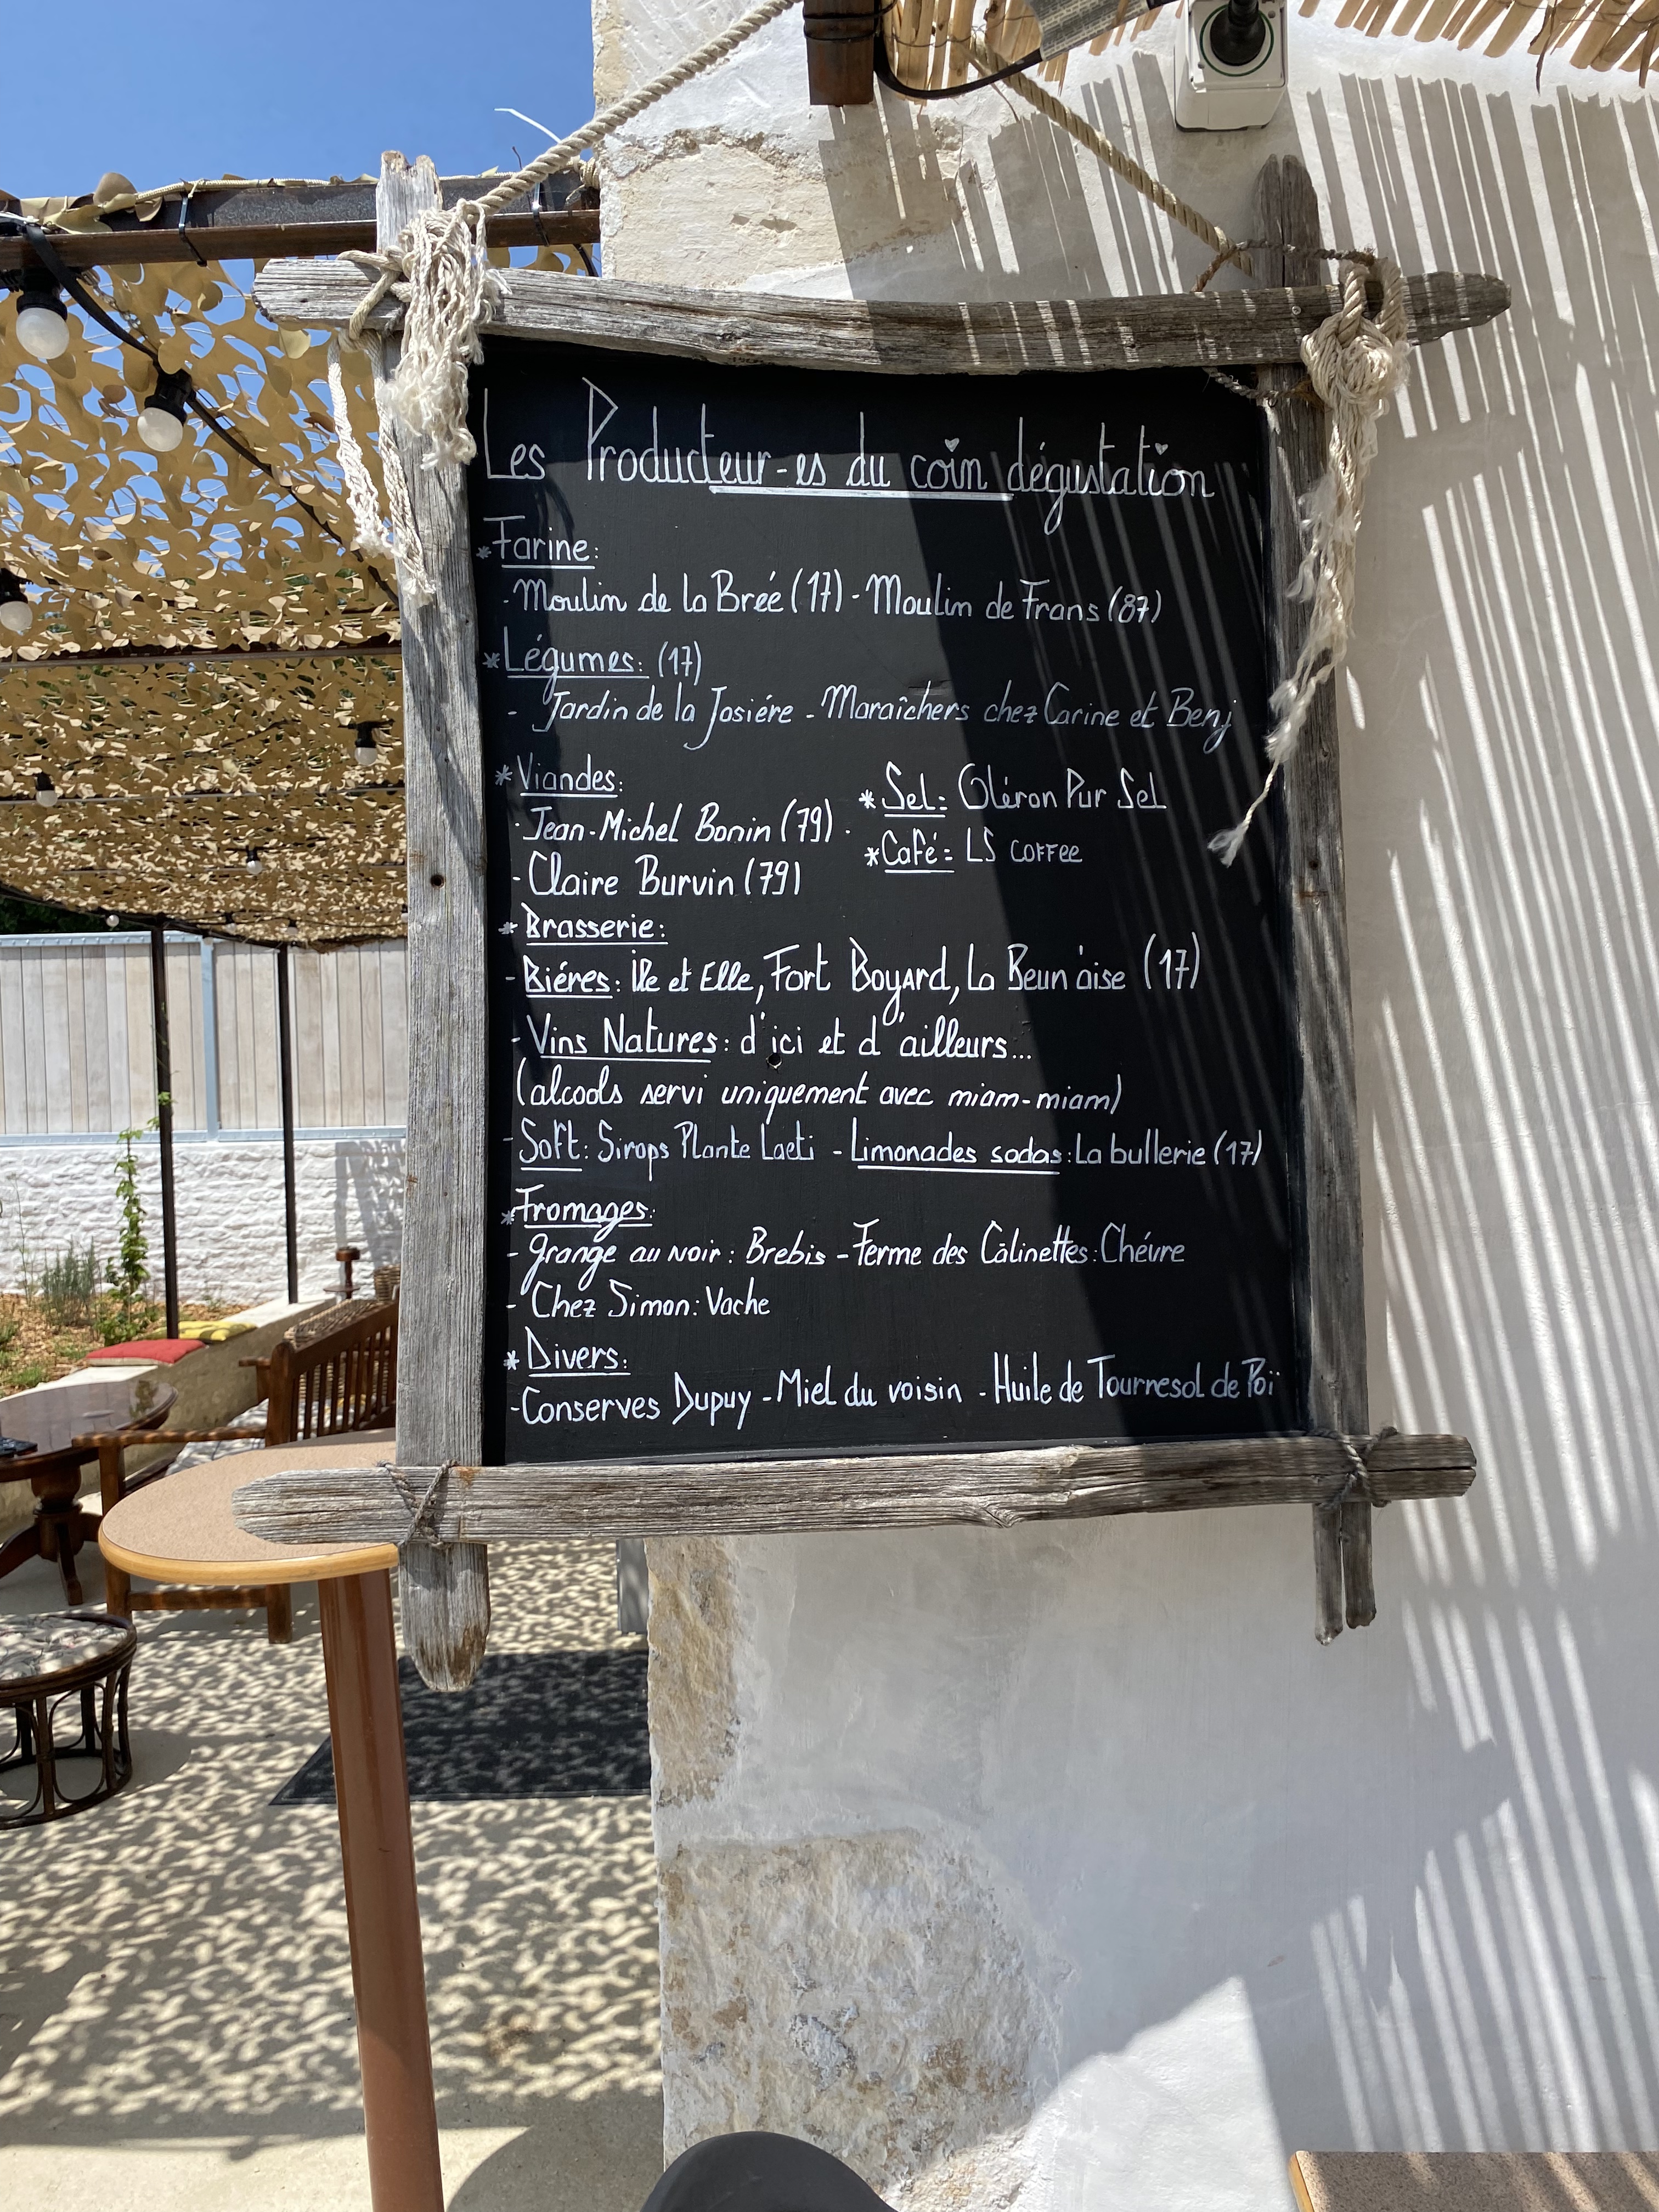 Les Producteur-es du coin dégustation
*Farine:
-Moulin de la Bréé (17) - Moulin de Frans (87)
*Légumes: (17)
- Jardin de la Josiére - Maraîchers chez Carine et Benj
*Viandes:
-Jean-Michel Bonin (79).
-Claire Burvin (79)
*Sel: Oléron Pur Sel
*Café: LS COFFEE
*Brasserie:
-Biéres: île et Elle, Fort Boyard, La Beun'aise (17)
-Vins Natures: d'ici et d'ailleurs...
(alcools servi uniquement avec miam-miam)
-Soft: Sirops Plante Laeti - Limonades sodas: La bullerie (17)
*Fromages:
- grange au noir: Brebis - Ferme des Câlinettes: Chévre
- Chez Simon: Vache
*Divers:
-Conserves Dupuy - Miel du voisin - Huile de Tournesol de Poï